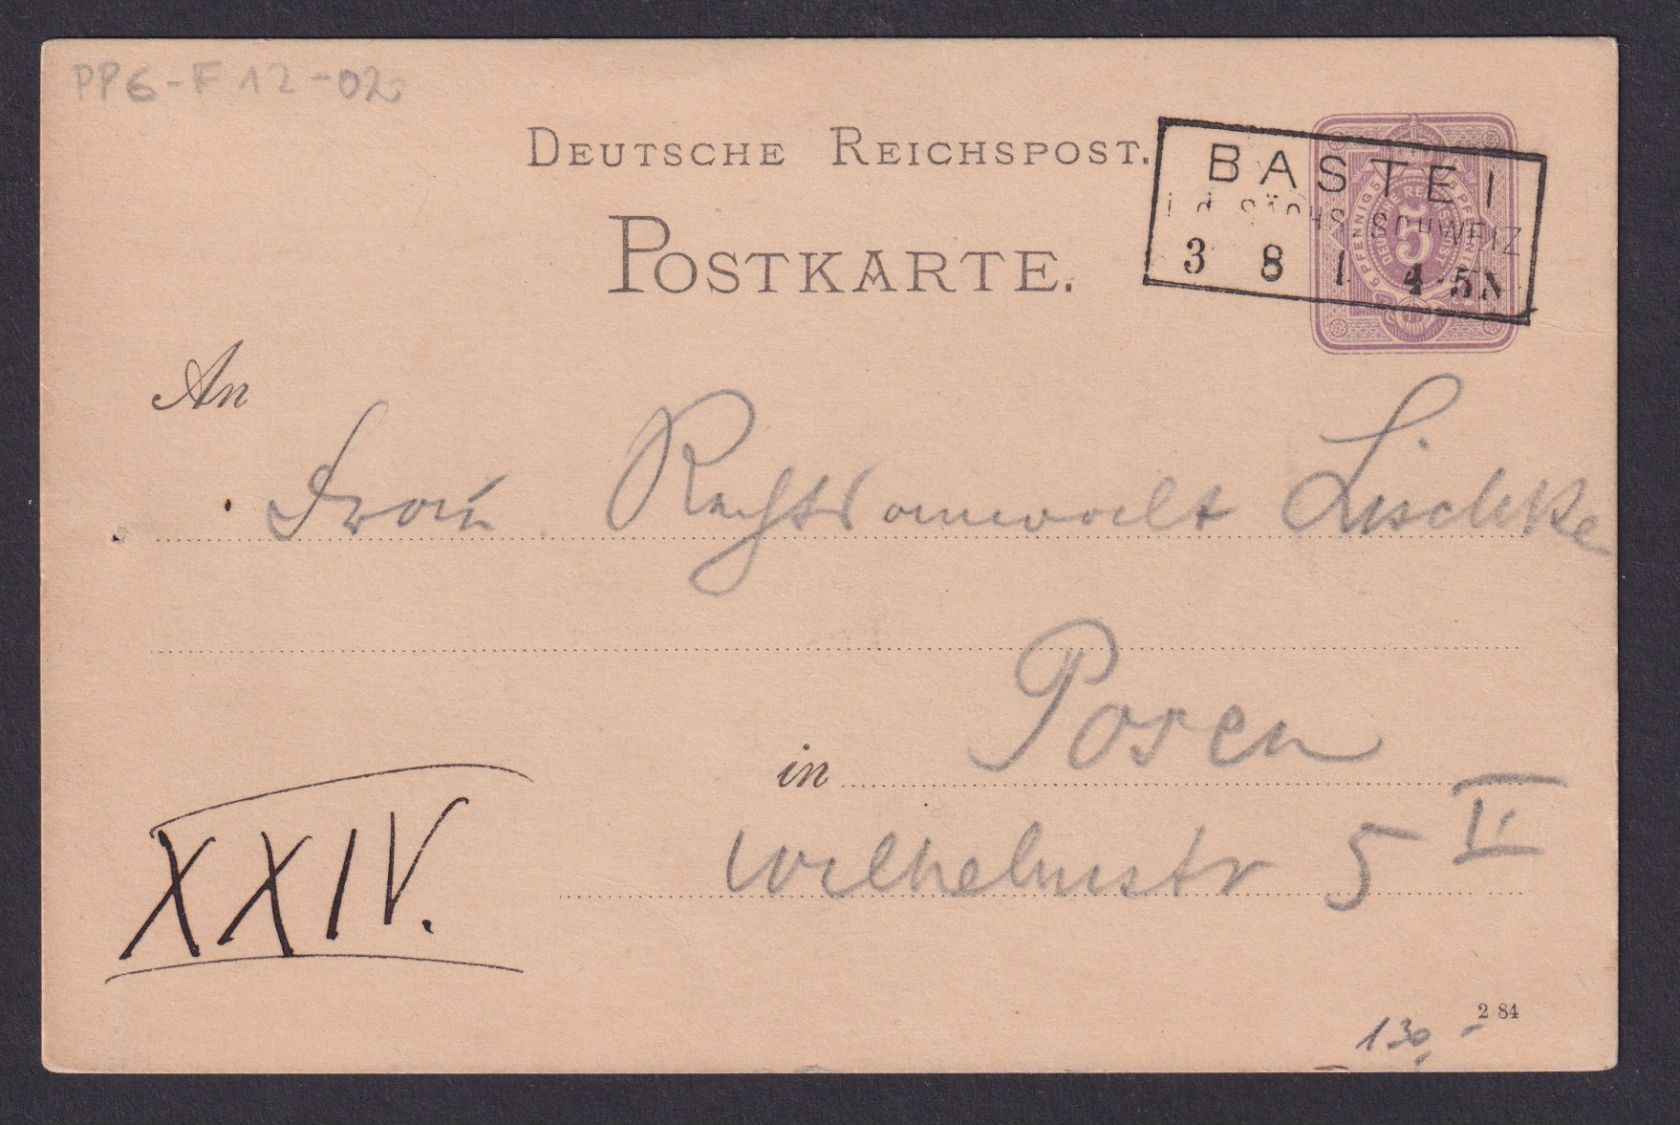 PP6-F12-02
DEUTSCHE REICHSPOST.
POSTKARTE.
BASTEI
i. d. SÄCHS. SCHWEIZ
3 8 1 4-5N
5 PFENNIG 5 PFENNIG
DEUTSCHE REICHSPOST
5
An
Frau Rechtsanwalt Lischke
in Posen
Wilhelmstr 5 II
XXIV.
2 84
130,-